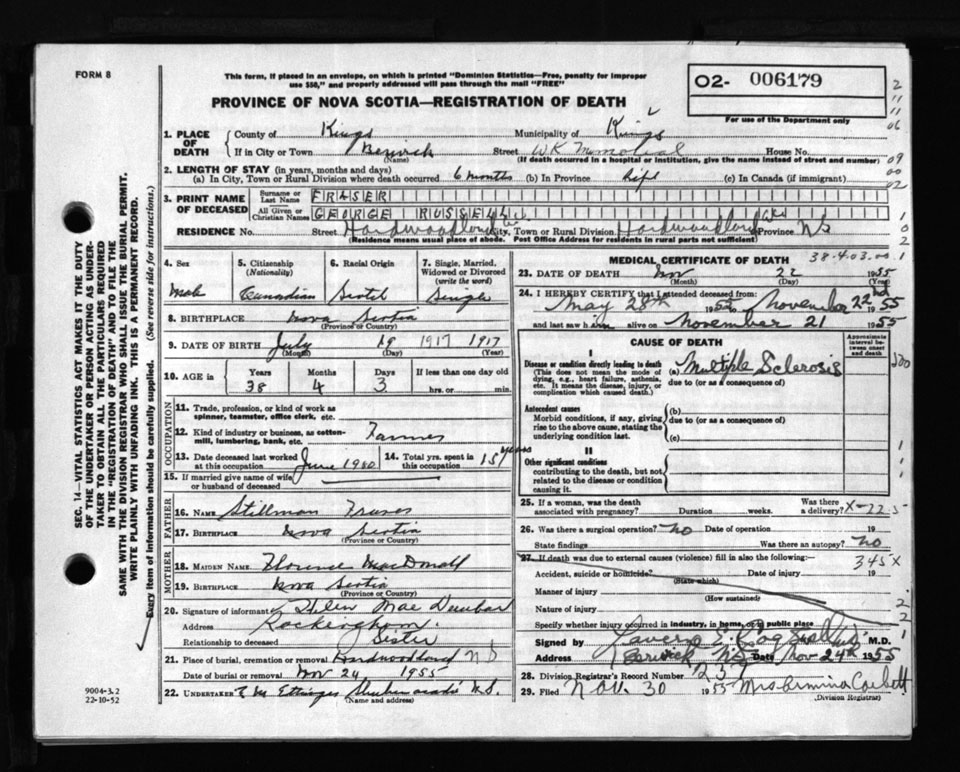 FORM 8
This form, if placed in an envelope, on which is printed "Dominion Statistics—Free, penalty for improper
use $50," and properly addressed will pass through the mail "FREE"
O2- 006179
For use of the Department only
PROVINCE OF NOVA SCOTIA—REGISTRATION OF DEATH
SEC. 14—VITAL STATISTICS ACT MAKES IT THE DUTY
OF THE UNDERTAKER OR PERSON ACTING AS UNDER-
TAKER TO OBTAIN ALL THE PARTICULARS REQUIRED
IN THE "REGISTRATION OF DEATH" AND TO FILE THE
SAME WITH THE DIVISION REGISTRAR WHO SHALL ISSUE THE BURIAL PERMIT.
WRITE PLAINLY WITH UNFADING INK. THIS IS A PERMANENT RECORD.
Every item of information should be carefully supplied. (See reverse side for instructions.)
1. PLACE OF DEATH County of Kings Municipality of Kings
If in City or Town Berwick (Name) Street W K Memorial House No.
(If death occurred in a hospital or institution, give the name instead of street and number)
2. LENGTH OF STAY (in years, months and days)
(a) In City, Town or Rural Division where death occurred 6 months (b) In Province life (c) In Canada (if immigrant)
3. PRINT NAME OF DECEASED Surname or Last Name FRASER
All Given or Christian Names GEORGE RUSSELL
RESIDENCE No. Street Hardwoodland City, Town or Rural Division Hardwoodland Province NS
(Residence means usual place of abode. Post Office Address for residents in rural parts not sufficient)
4. Sex Male
5. Citizenship (Nationality) Canadian
6. Racial Origin Scotch
7. Single, Married, Widowed or Divorced (write the word) Single
8. BIRTHPLACE Nova Scotia
(Province or Country)
9. DATE OF BIRTH July 19 1917 1917
(Month) (Day) (Year)
10. AGE in Years 38 Months 4 Days 3 If less than one day old
hrs. or min.
OCCUPATION
11. Trade, profession, or kind of work as
spinner, teamster, office clerk, etc.
12. Kind of industry or business, as cotton-
mill, lumbering, bank, etc. Farmer
13. Date deceased last worked
at this occupation June
14. Total yrs. spent in
this occupation 15 years
15. If married give name of wife
or husband of deceased
FATHER
16. NAME Stillman Fraser
17. BIRTHPLACE Nova Scotia
(Province or Country)
MOTHER
18. MAIDEN NAME Florence MacDonald
19. BIRTHPLACE Nova Scotia
(Province or Country)
20. Signature of informant Helen Mae Dunbar
Address Rockingham
Relationship to deceased Sister
21. Place of burial, cremation or removal Hardwoodland NS
Date of burial or removal Nov 24 1955
22. UNDERTAKER Ettinger Shubenacadie N.S.
(Name and address)
9004-3.2
22-10-52
MEDICAL CERTIFICATE OF DEATH 38-4.03.00
23. DATE OF DEATH Nov 22 1955
24. I HEREBY CERTIFY that I attended deceased from:
May 28th 1955 to November 22nd 1955
and last saw him alive on November 21 1955
CAUSE OF DEATH
Approximate interval between onset and death
I
Disease or condition directly leading to death
(This does not mean the mode of
dying, e.g., heart failure, asthenia,
etc. It means the disease, injury, or
complication which caused death.)
(a) Multiple Sclerosis
due to (or as a consequence of)
Antecedent causes
Morbid conditions, if any, giving
rise to the above cause, stating the
underlying condition last.
(b)
due to (or as a consequence of)
(c)
II
Other significant conditions
contributing to the death, but not
related to the disease or condition
causing it.
25. If a woman, was the death
associated with pregnancy? Duration weeks. Was there
a delivery? X-22.5
26. Was there a surgical operation? no Date of operation 19
State findings Was there an autopsy? no
27. If death was due to external causes (violence) fill in also the following:- 345X
Accident, suicide or homicide? Date of injury 19
(State which)
Manner of injury
(How sustained)
Nature of injury
Specify whether injury occurred in industry, in home, or in public place
Signed by M.D.
Address Berwick NS Date Nov 24th 1955
28. Division Registrar's Record Number
29. Filed Nov. 30 1955 Mrs Ermina Corbett
(Division Registrar)